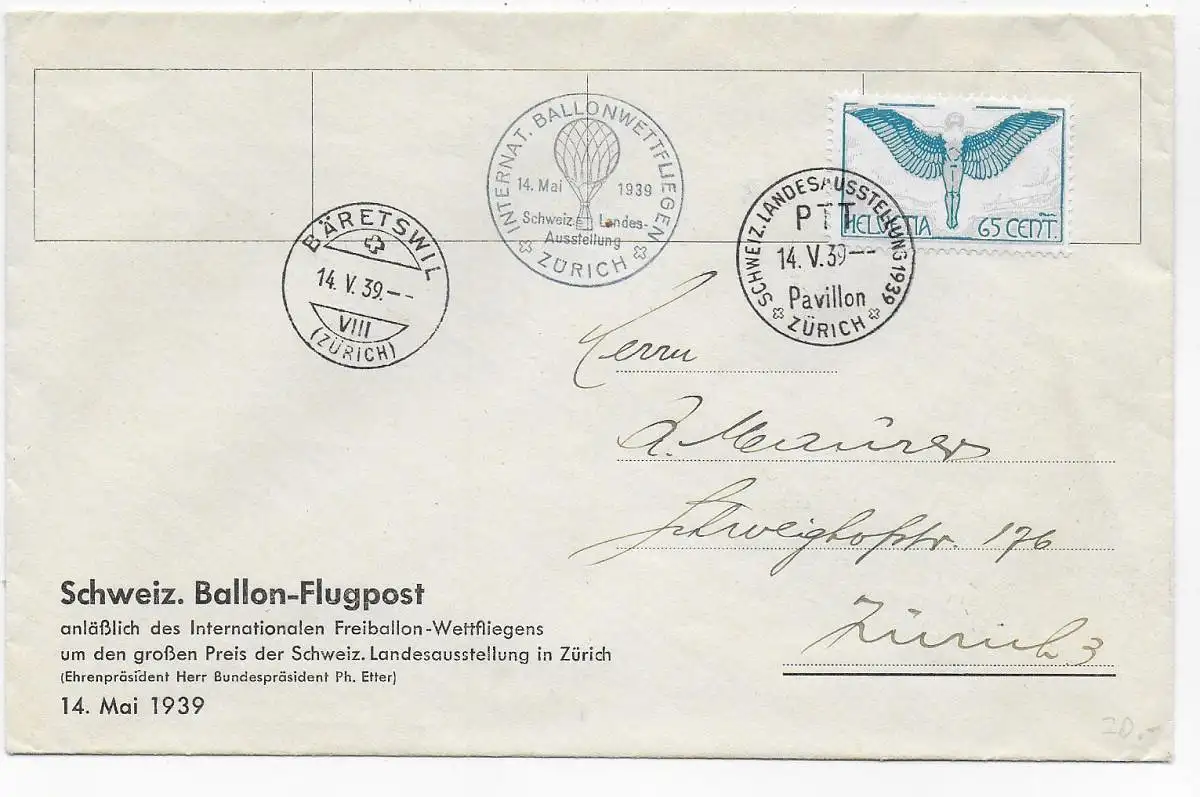 INTERNAT. BALLONWETTFLIEGEN
14. Mai 1939
Schweiz. Landes-
Ausstellung
ZÜRICH
HELVETIA 65 CENT.
SCHWEIZ. LANDESAUSSTELLUNG 1939
PTT
14. V. 39---
Pavillon
ZÜRICH
BÄRETSWIL
14. V. 39.--
VIII
(ZÜRICH)
Herrn
A. Maurer
Schweighofstr. 176
Zürich 3
Schweiz. Ballon-Flugpost
anläßlich des Internationalen Freiballon-Wettfliegens
um den großen Preis der Schweiz. Landesausstellung in Zürich
(Ehrenpräsident Herr Bundespräsident Ph. Etter)
14. Mai 1939
20.-